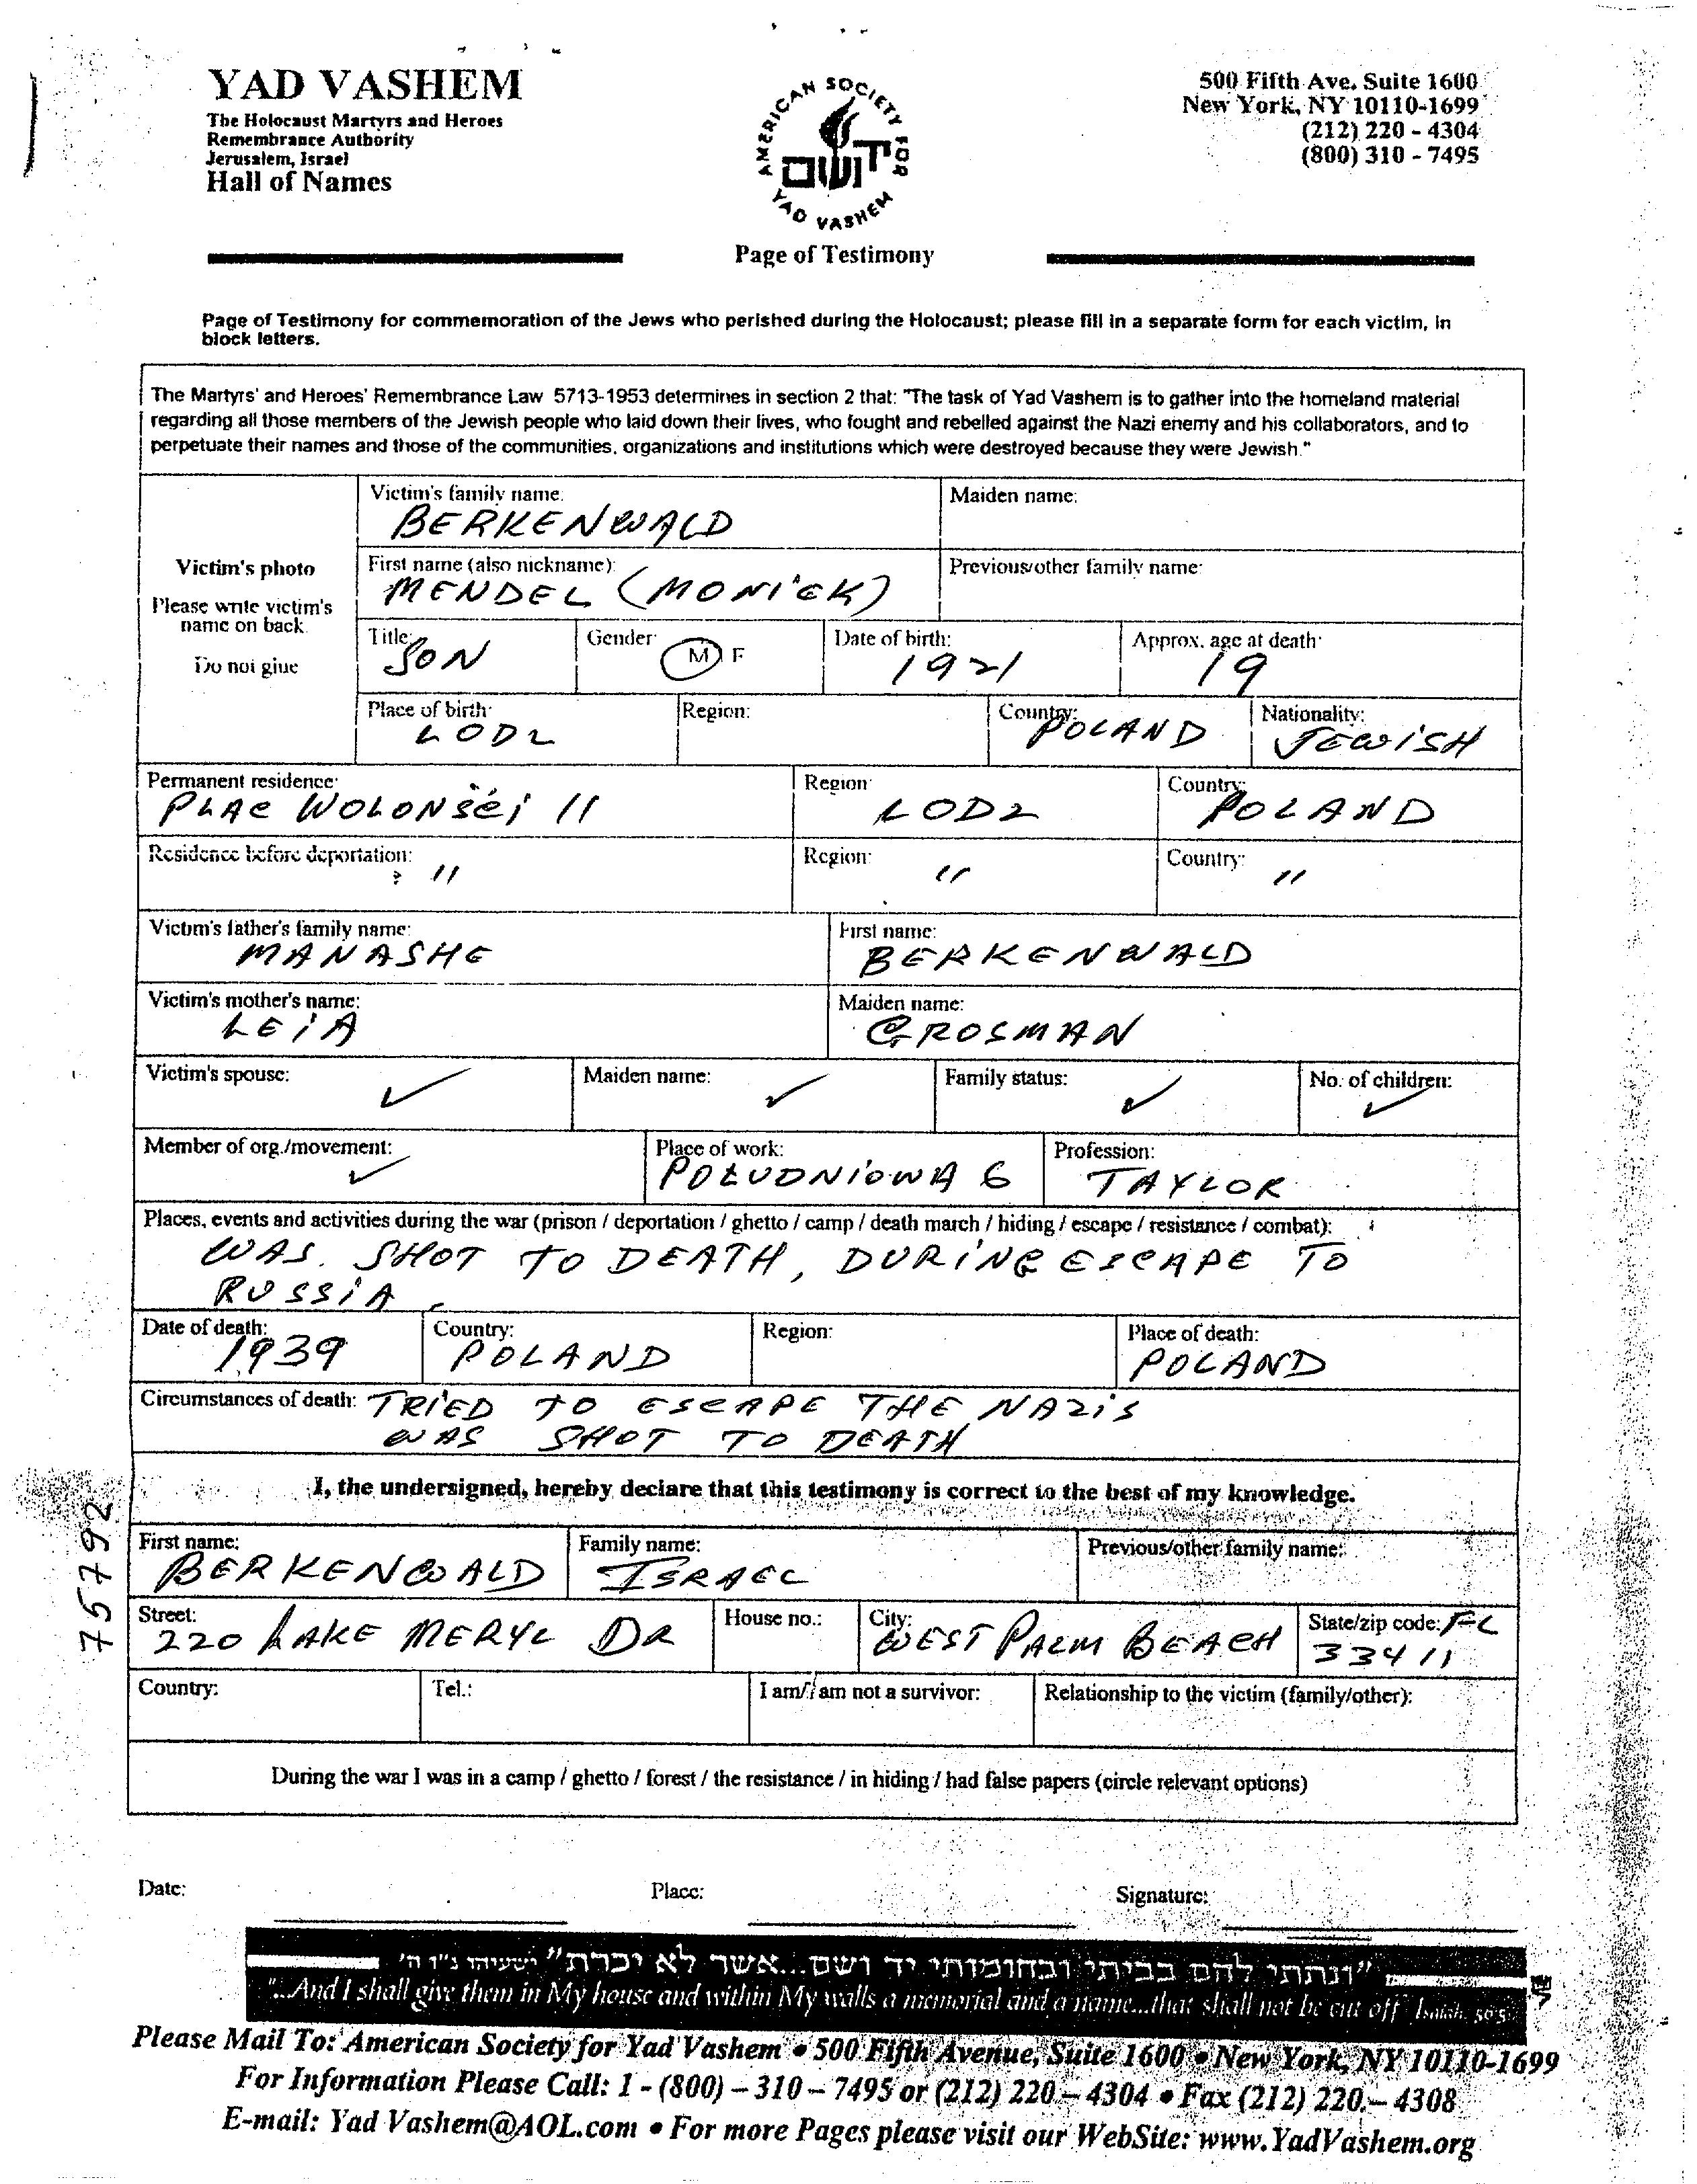 YAD VASHEM
The Holocaust Martyrs and Heroes
Remembrance Authority
Jerusalem, Israel
Hall of Names
AMERICAN SOCIETY FOR
יד ושם
YAD VASHEM
Page of Testimony
500 Fifth Ave. Suite 1600
New York, NY 10110-1699
(212) 220 - 4304
(800) 310 - 7495
Page of Testimony for commemoration of the Jews who perished during the Holocaust; please fill in a separate form for each victim, in
block letters.
The Martyrs' and Heroes' Remembrance Law 5713-1953 determines in section 2 that: "The task of Yad Vashem is to gather into the homeland material
regarding all those members of the Jewish people who laid down their lives, who fought and rebelled against the Nazi enemy and his collaborators, and to
perpetuate their names and those of the communities, organizations and institutions which were destroyed because they were Jewish."
Victim's photo
Please write victim's
name on back
Do not glue
Victim's family name: Maiden name:
BERKENWALD
First name (also nickname): Previous/other family name:
MENDEL (MONIEK)
Title: Gender Date of birth: Approx. age at death
SON M F 1921 19
Place of birth Region: Country: Nationality:
LODZ POLAND JEWISH
Permanent residence: Region Country:
PLAC 11 LODZ POLAND
Residence before deportation: Region: Country:
? " " "
Victim's father's family name: First name:
MANASHE BERKENWALD
Victim's mother's name: Maiden name:
LEIA GROSMAN
Victim's spouse: Maiden name: Family status: No. of children:
✓ ✓ ✓ ✓
Member of org./movement: Place of work: Profession:
✓ POŁUDNIOWA 6 TAYLOR
Places, events and activities during the war (prison / deportation / ghetto / camp / death march / hiding / escape / resistance / combat):
WAS SHOT TO DEATH, DURING ESCAPE TO
RUSSIA.
Date of death: Country: Region: Place of death:
1939 POLAND POLAND
Circumstances of death: TRIED TO ESCAPE THE NAZIS
WAS SHOT TO DEATH
I, the undersigned, hereby declare that this testimony is correct to the best of my knowledge.
First name: Family name: Previous/other family name:
BERKENWALD ISRAEL
Street: House no.: City: State/zip code: FL
220 LAKE MERYL DR WEST PALM BEACH 33411
Country: Tel.: I am/I am not a survivor: Relationship to the victim (family/other):
During the war I was in a camp / ghetto / forest / the resistance / in hiding / had false papers (circle relevant options)
Date: Place: Signature:
75792
"ונתתי להם בביתי ובחומותי יד ושם...אשר לא יכרת" ישעיהו נ"ו ה'
"...And I shall give them in My house and within My walls a memorial and a name...that shall not be cut off" Isaiah, 56:5
Please Mail To: American Society for Yad Vashem • 500 Fifth Avenue, Suite 1600 • New York, NY 10110-1699
For Information Please Call: 1 - (800) – 310 – 7495 or (212) 220 – 4304 • Fax (212) 220 – 4308
E-mail: Yad Vashem@AOL.com • For more Pages please visit our WebSite: www.YadVashem.org